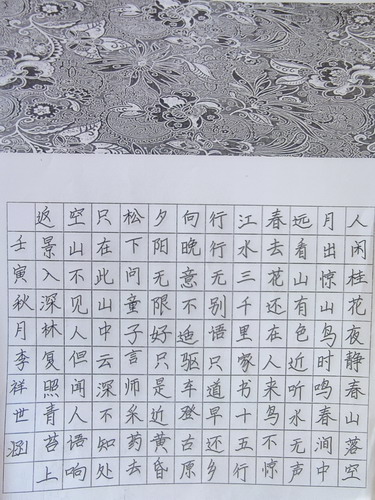 人闲桂花夜静春山落空
月出惊山鸟时鸣春涧中
远看山有色近听水无声
春去花还在人来鸟不惊
江水三千里家书十五行
行行无别语只道早还乡
向晚意不适驱车登古原
夕阳无限好只是近黄昏
松下问童子言师采药去
只在此山中云深不知处
空山不见人但闻人语响
返景入深林复照青苔上
壬寅秋月李祥世涵